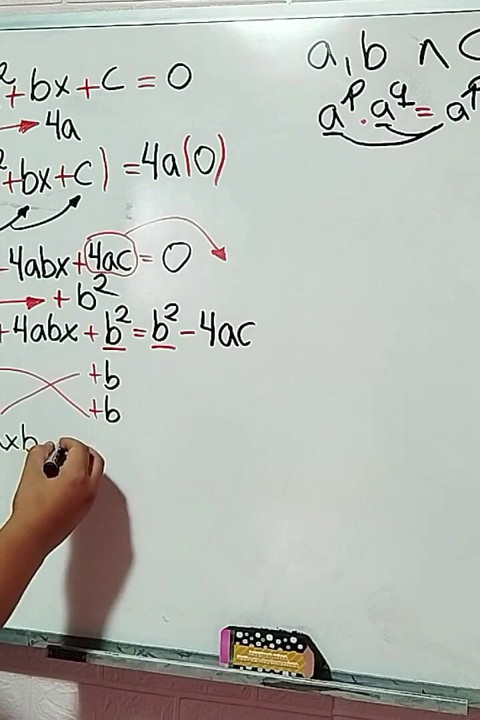 ² + bx + c = 0
→ 4a
² + bx + c) = 4a(0)
4abx + 4ac = 0
→ + b²
+ 4abx + b² = b² - 4ac
+b
+b
xb
a, b ∩ C
aᵖ · a^q = aᵖ